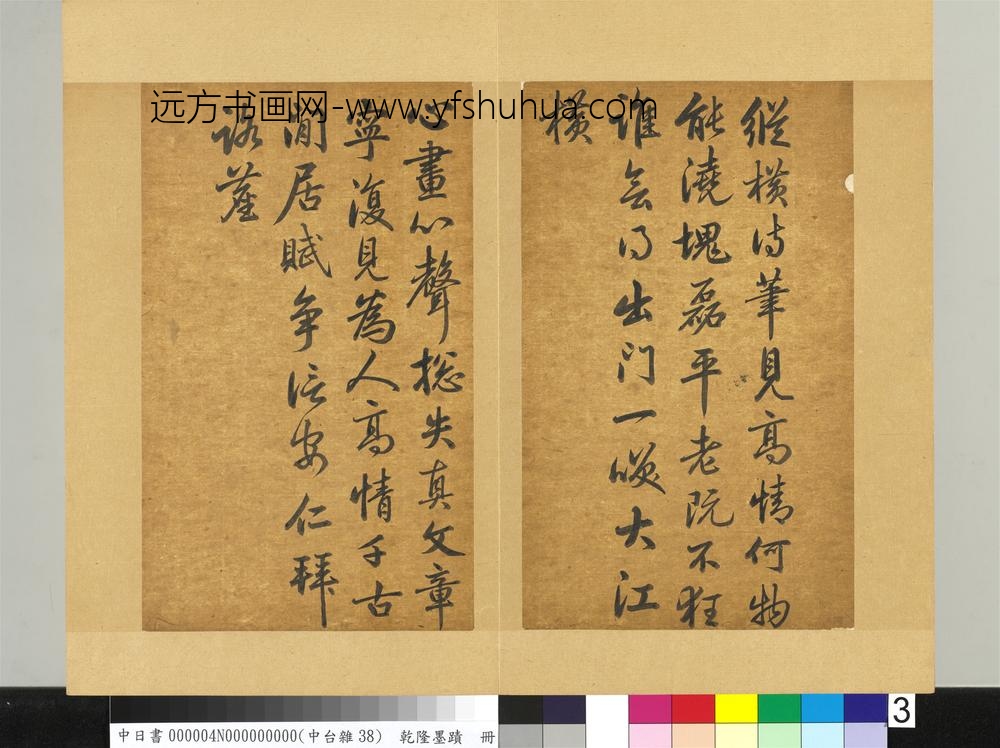 远方书画网-www.yfshuhua.com
縱橫詩筆見高情何物
能澆塊磊平老阮不狂
誰會得出門一笑大江
橫
心畫心聲總失真文章
寧復見為人高情千古
閒居賦爭信安仁拜
路塵
3
中日書 000004N000000000(中台雜 38) 乾隆墨蹟 冊